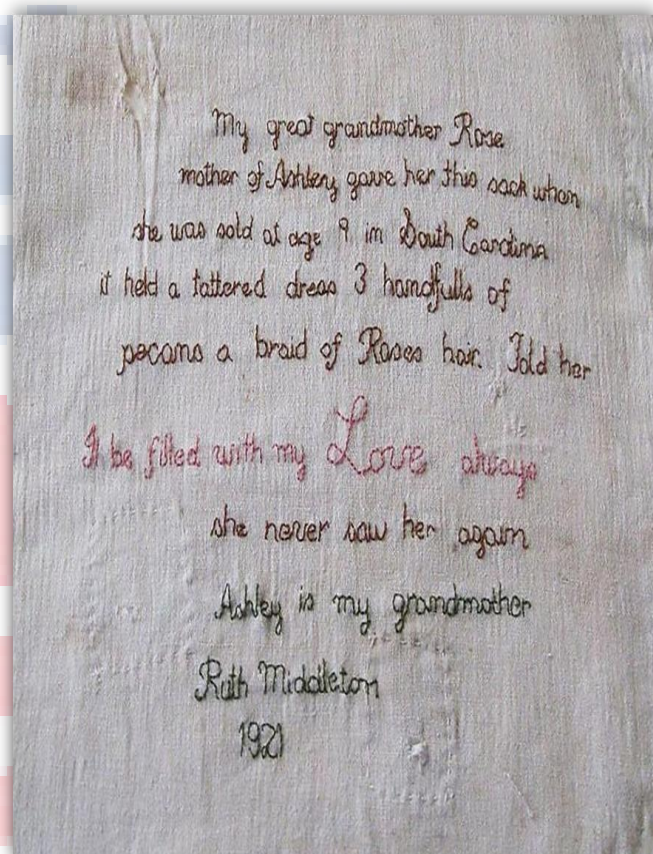 My great grandmother Rose
mother of Ashley gave her this sack when
she was sold at age 9 in South Carolina
it held a tattered dress 3 handfulls of
pecans a braid of Roses hair. Told her
It be filled with my Love always
she never saw her again
Ashley is my grandmother
Ruth Middleton
1921